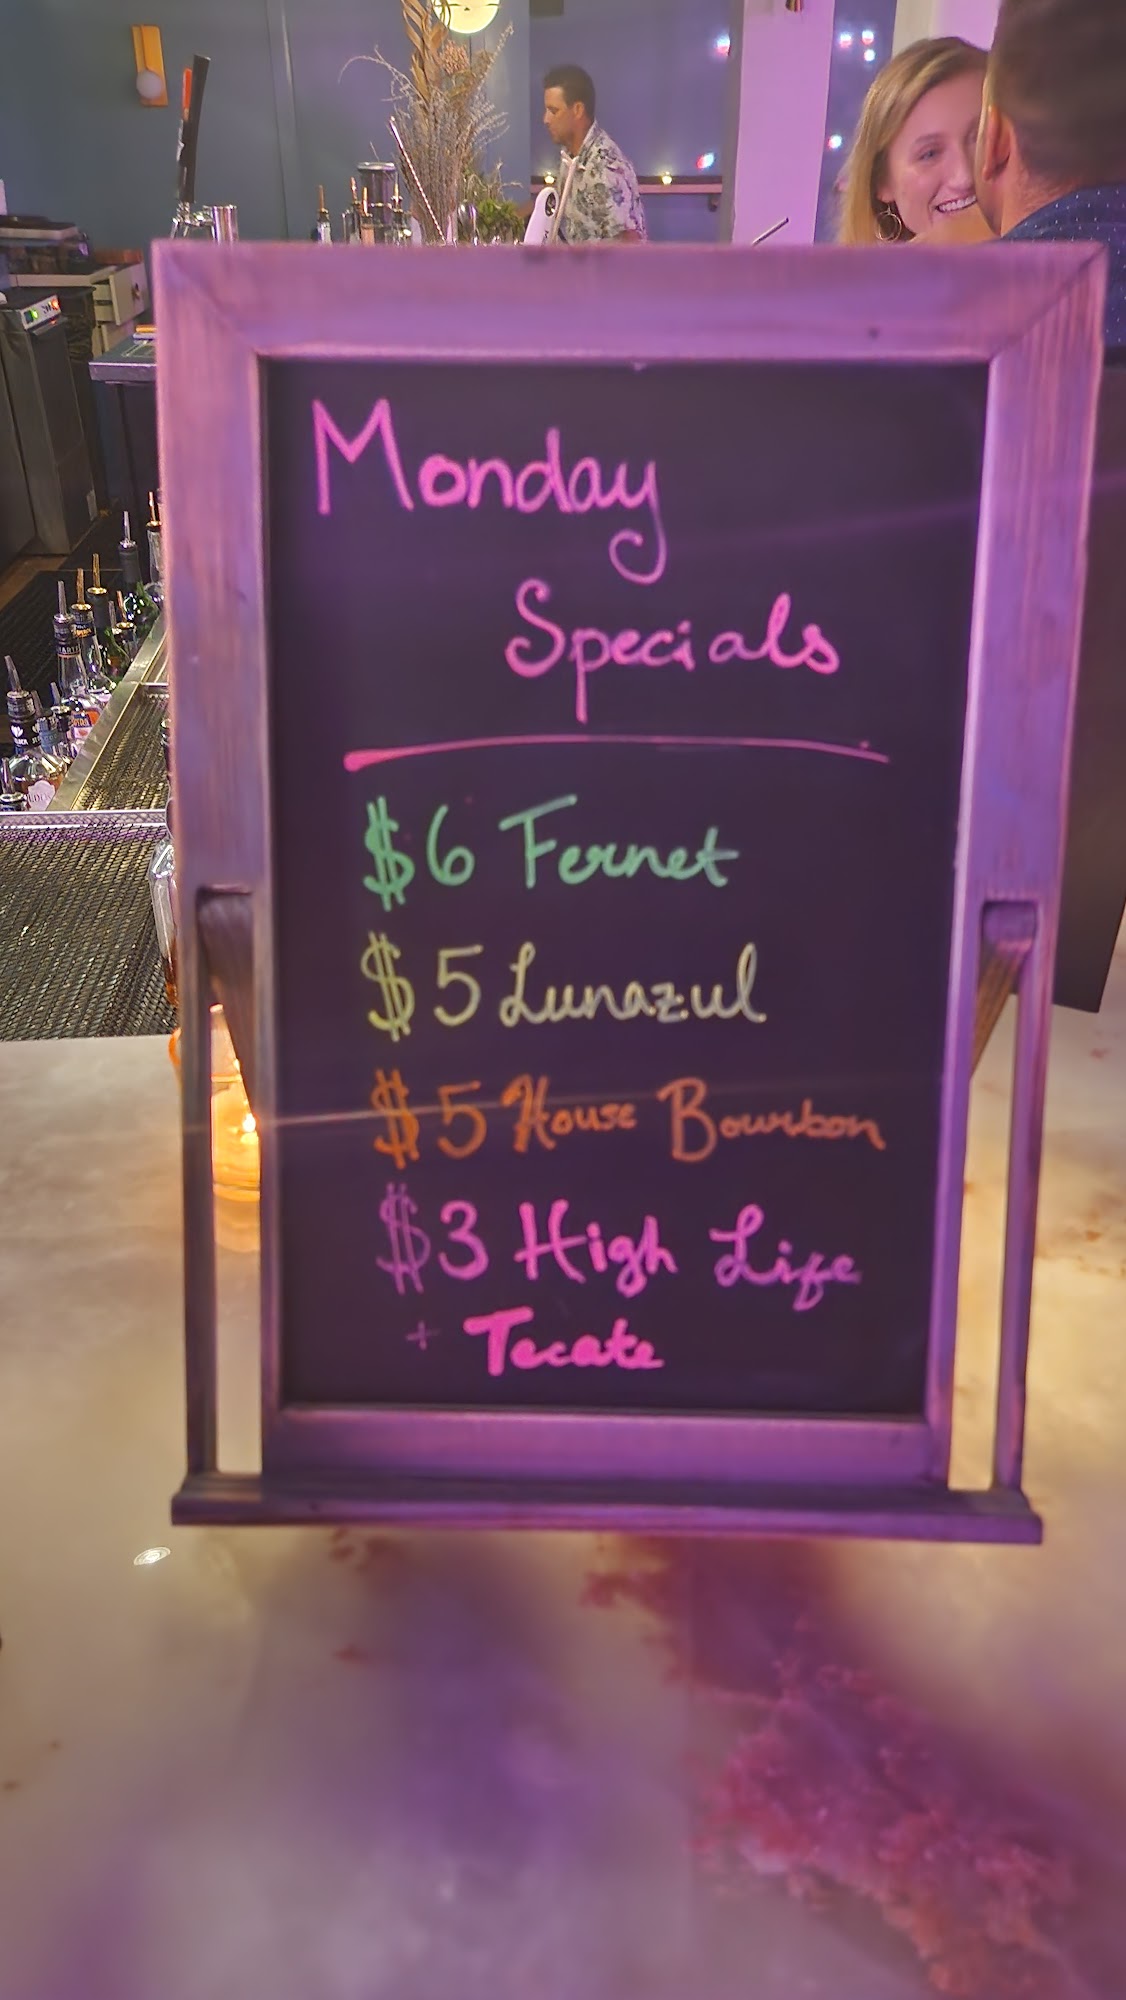 Monday
Specials
$6 Fernet
$5 Lunazul
$5 House Bourbon
$3 High Life
+ Tecate